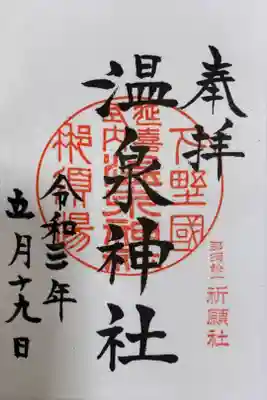 奉拝
下野國
延喜式内温泉神社
那須湯
温泉神社
那須与一
祈願社
令和三年
五月十九日